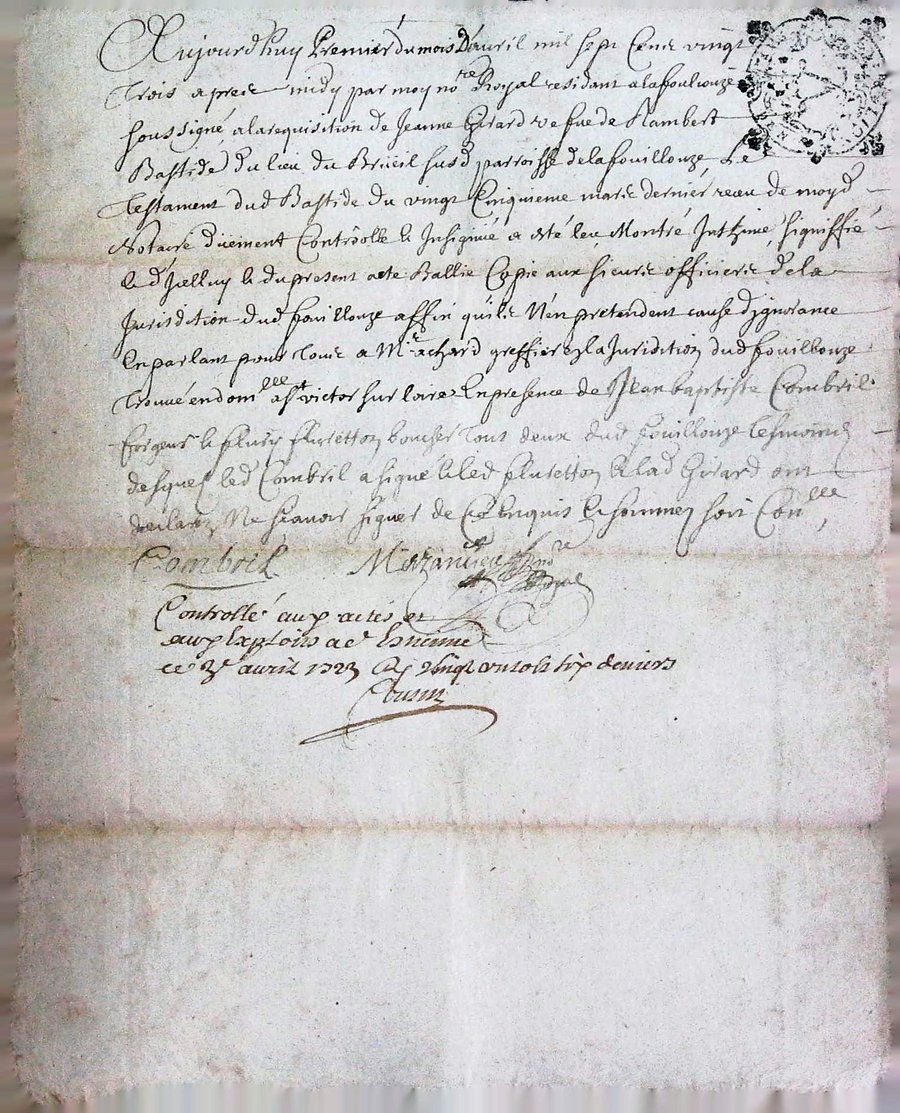 Aujourdhuy Premier du mois Davril mil sept Cent vingt
Trois apres midy par moy nore Royal residant a lafoulionze
soussigné, a la requisition de Jeanne Girard vefue de Rambert
Bastide du lieu du Brueil susd parroisse delafouillouze Le
Testament dud Bastide du vingt Cinquieme mars dernier receu de moyd
Notaire düement Controolle & Insignué a esté leu, Montré Inthimé, signiffié
& d'Jcelluy & du present acte Ballié Copie aux sieurs officiers de la
Jurisdition dud fouillouze affin quils N'en pretendent cause dignorance
En parlant pour Tous a Me achard greffier en la Juridition dud fouillouze
Trouvé en domlle a st victor sur loire En presence de Jean baptiste Combril
forgeur & fleury fluretton boucher Tout deux dud fouillouze tesmoins
desquels led Combril a signé & led fluretton & lad Girard ont
declaré Ne scavoir signer de Ce Enquis & sommés soit Conlle,
Combril
nore Royal
Controllé aux actes et
aux Exploits a St Estienne
ce 3e avril 1723 Rx vingt un sols six deniers
Cousin